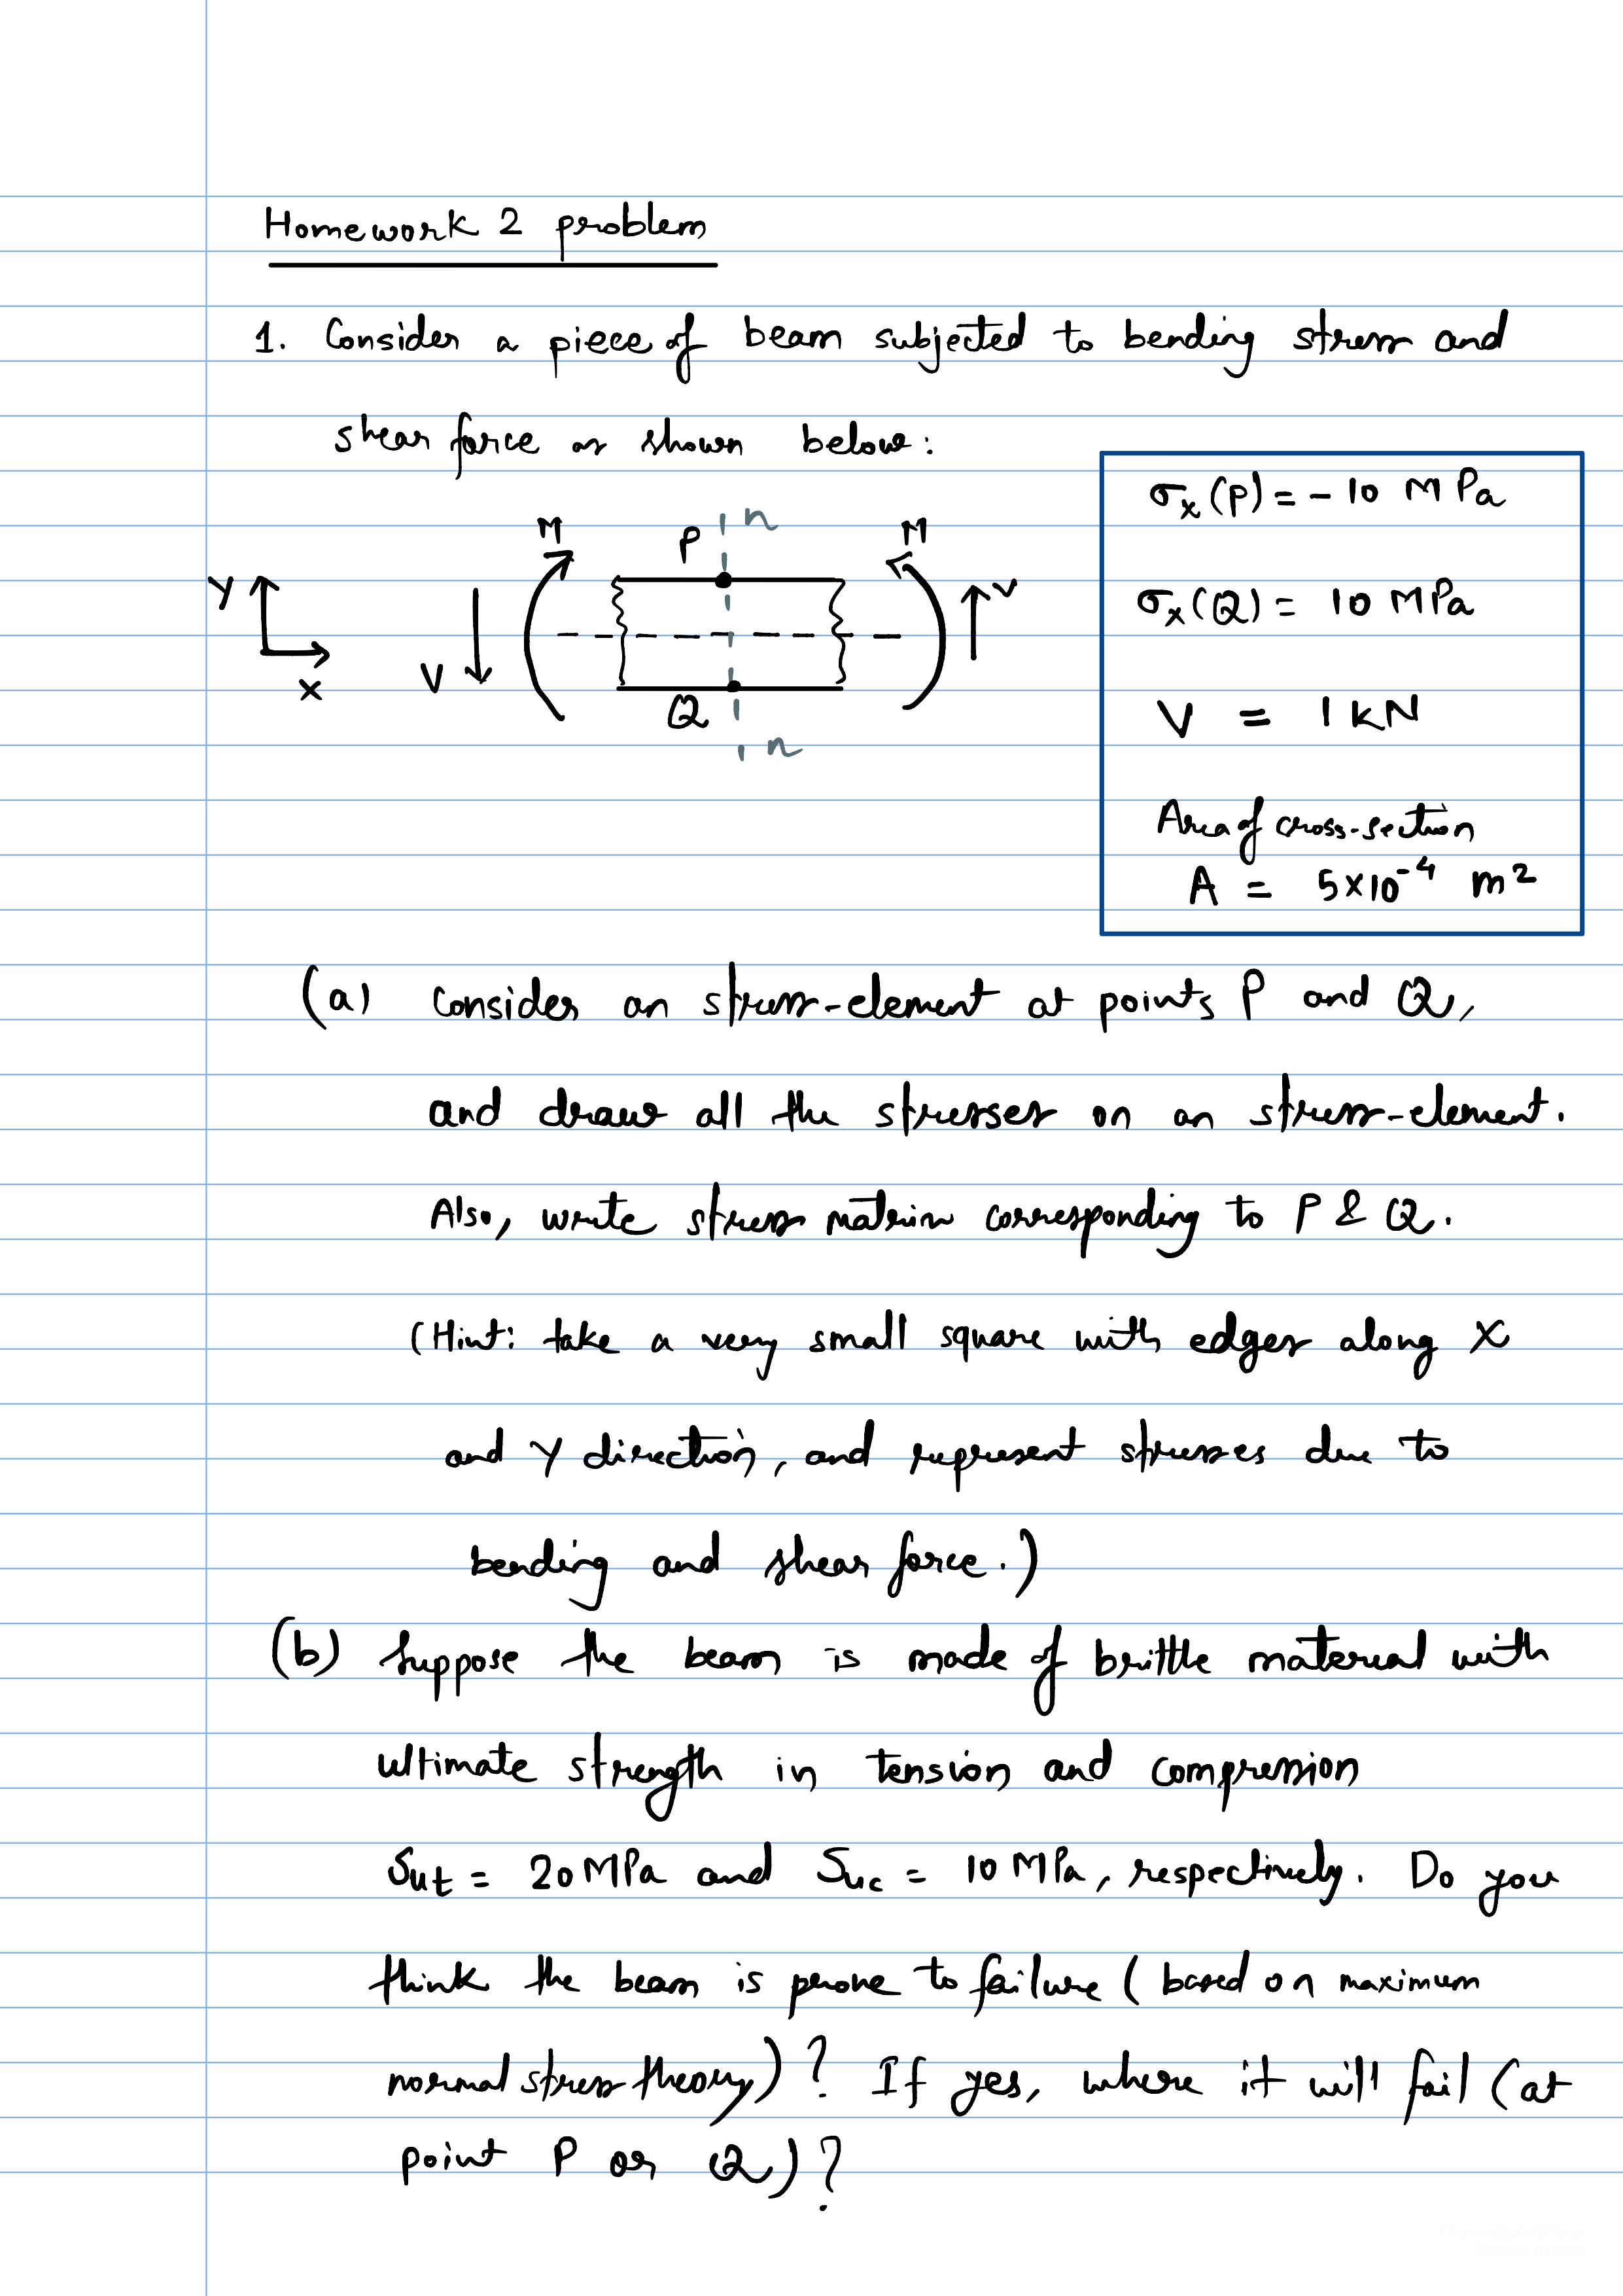 Homework 2 problem
1. Consider a piece of beam subjected to bending stress and
shear force as shown below:
σx(P) = - 10 MPa
σx(Q) = 10 MPa
V = 1 kN
Area of cross-section
A = 5×10⁻⁴ m²
Y
X
V
M
P
n
M
V
Q
n
(a) Consider an stress-element at points P and Q,
and draw all the stresses on an stress-element.
Also, write stress matrix corresponding to P & Q.
(Hint: take a very small square with edges along X
and Y direction, and represent stresses due to
bending and shear force.)
(b) Suppose the beam is made of brittle material with
ultimate strength in tension and compression
Sut = 20 MPa and Suc = 10 MPa, respectively. Do you
think the beam is prone to failure (based on maximum
normal stress theory)? If yes, where it will fail (at
point P or Q)?